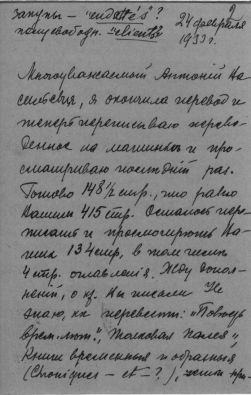 закупы – "endettés"?
24 февраля
1933 г.
Многоуважаемый Антоній Ва-
сильевич, я окончила перевод и
теперь переписываю переве-
денное на машинке и про-
сматриваю последній раз.
Готово 148 1/2 стр., что равно
Вашим 415 стр. Осталось пере-
писать и просмотреть Ва-
ших 134 стр., в том числе
4 стр. оглавленія. Жду допол-
неній, о кот. Вы писали. Не
знаю, как перевести: "Повесть
врем. лет", "Толковая Палея",
Книги временныя и образныя
(Chroniques – et – ?),